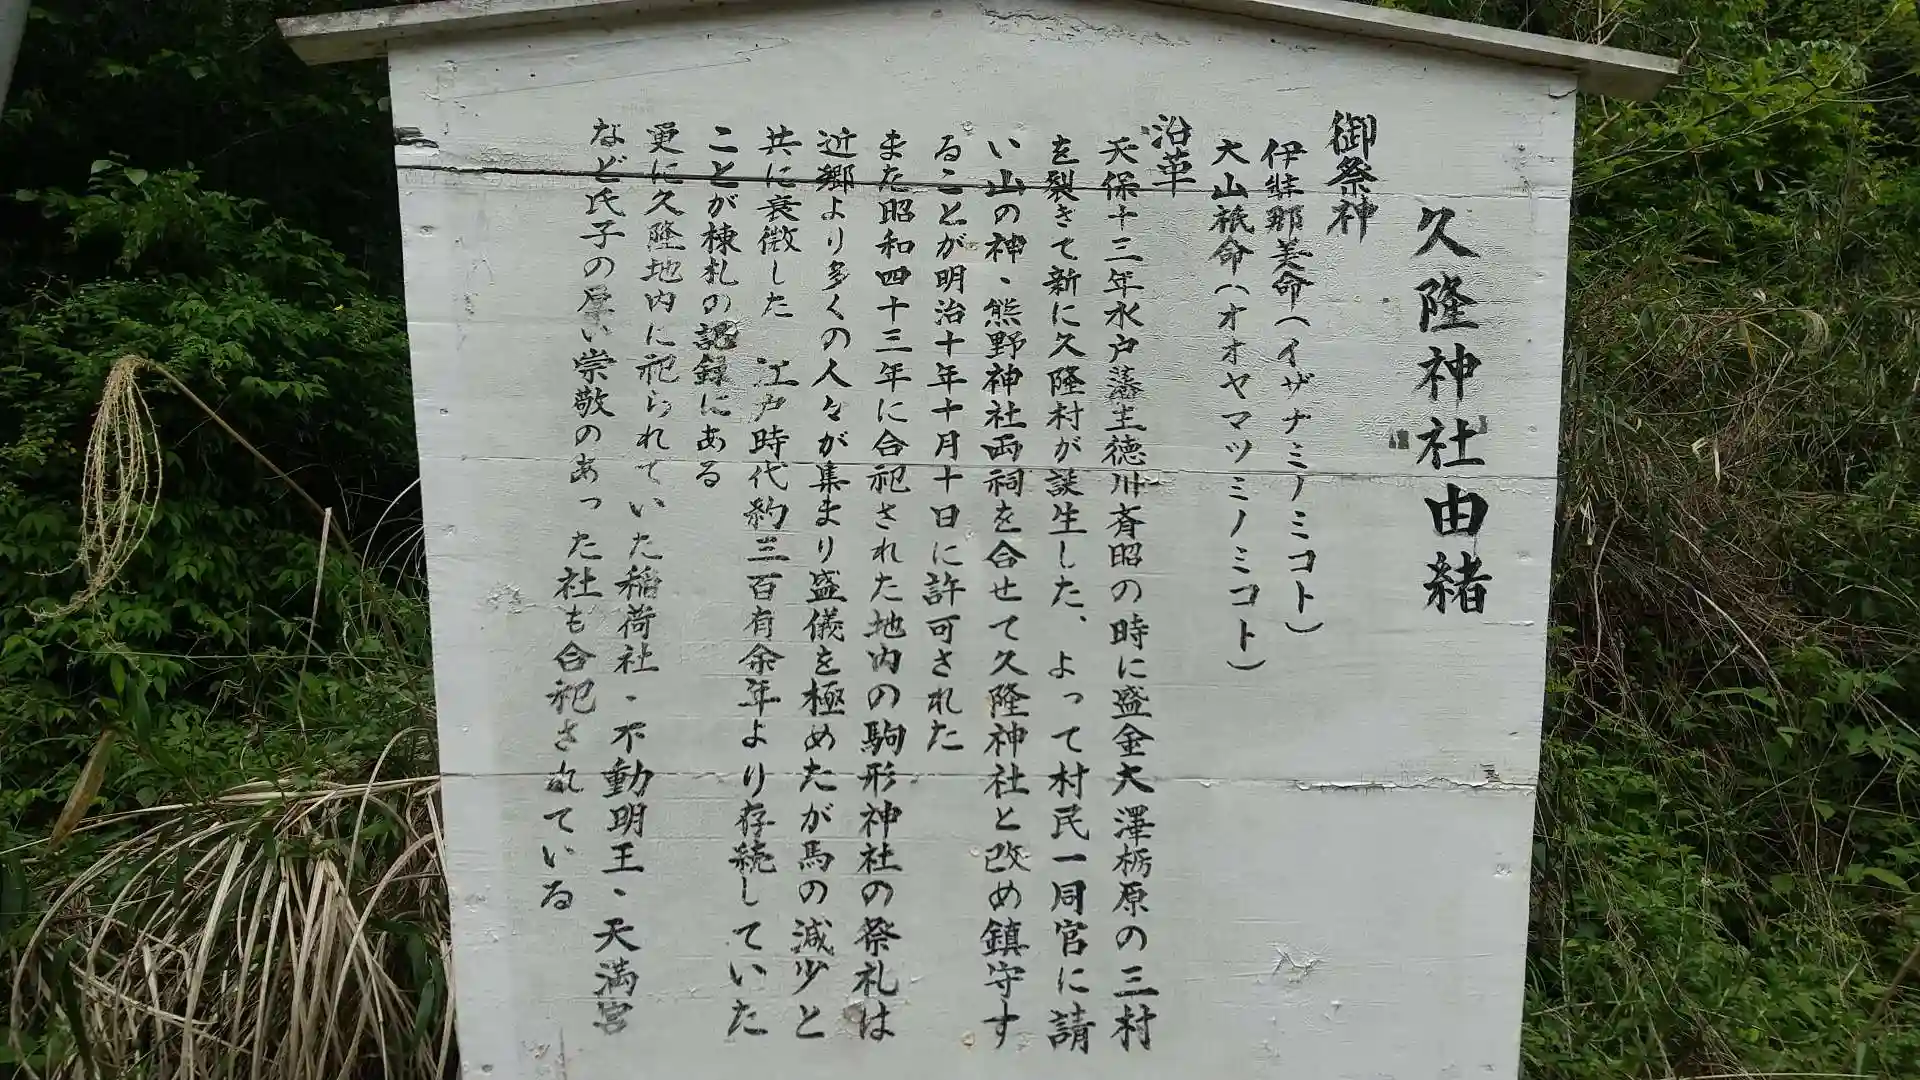 久隆神社由緒
御祭神
伊弉那美命(イザナミノミコト)
大山祇命(オオヤマツミノミコト)
沿革
天保十三年水戸藩主徳川斉昭の時に盛金大澤栃原の三村
を裂きて新に久隆村が誕生した、よって村民一同官に請
い山の神、熊野神社両祠を合せて久隆神社と改め鎮守す
ることが明治十年十月十日に許可された
また昭和四十三年に合祀された地内の駒形神社の祭礼は
近郷より多くの人々が集まり盛儀を極めたが馬の減少と
共に衰微した 江戸時代約三百有余年より存続していた
ことが棟札の記録にある
更に久隆地内に祀られていた稲荷社、不動明王、天満宮
など氏子の厚い崇敬のあった社も合祀されている